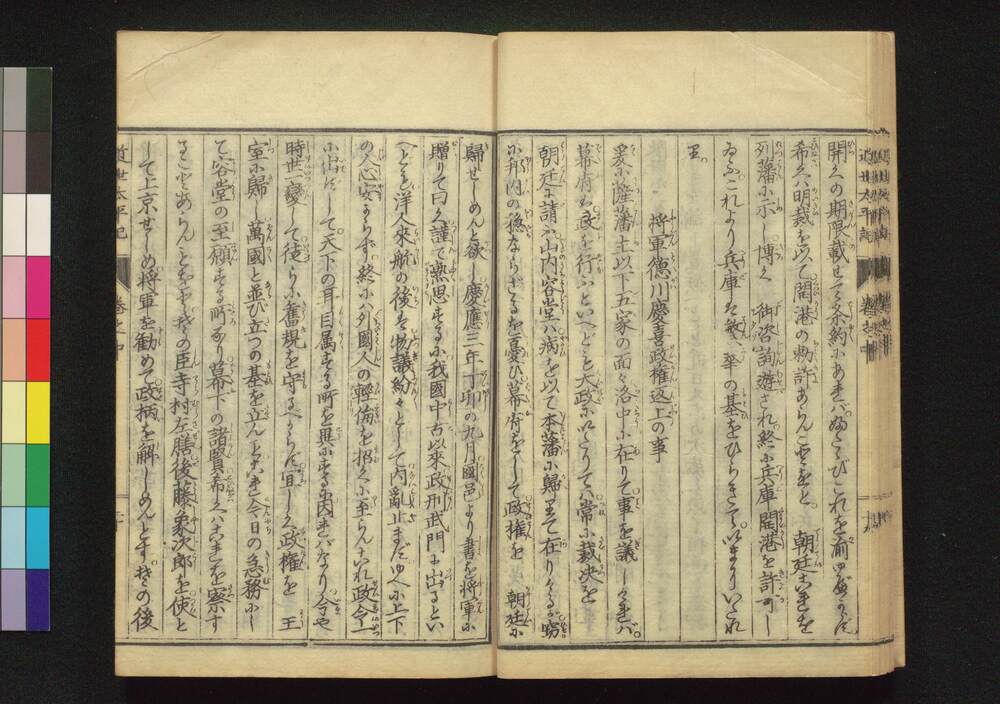 開くの期限載せて条約にあれバふたゝびこれを前ゆべからず
希くハ明裁を以て開港の勅許あらんことをと　朝廷これを
列藩に示し博く　御咨詢遊され終に兵庫開港を許可し
これより兵庫は繁華の基をひらきて
り
將軍德川慶喜政権返上の事
爰に薩藩士以下五家の面々洛中に在りて事を議しけれバ
幕府も政を行ふといへども大政にいたりてハ常に裁決を
朝廷に請ふ山内容堂ハ病を以て本藩に歸りて在りけるが窃
に邦内の穏ならざるを憂ひ幕府をして政権を　朝廷に
歸せしめんと欲し慶應三年丁卯の九月國邑より書を將軍に
贈りて曰く謹で熟思するに我國中古以來政刑武門に出るとい
へども洋人來航の後は物議紛々として内亂止まずゆへに上下
の人心安からず終に外國人の輕侮を招くに至らんこれ政令二
に出にして天下の耳目属する所を異にするに因れバなり今や
時世一變して徒らに舊規を守るべからず宜しく政権を　王
室に歸し萬國と並び立つの基を立んこと是今日の急務にし
て容堂の至願する所なり幕下の諸賢希くハこれを察す
ることあらんことをと其の臣寺村左膳後藤象次郎を使と
して上京せしめ将軍を勧めて政柄を解しめんとす其の後
近世太平記
卷之中